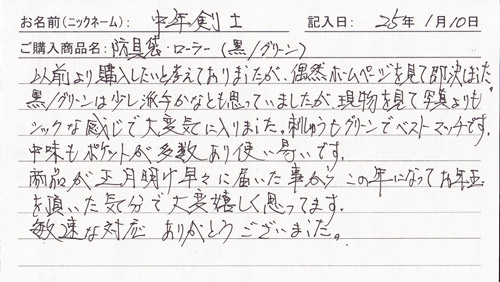 お名前(ニックネーム): 中年剣士 記入日: 25年 1月10日
ご購入商品名: 防具袋・ローラー(黒/グリーン)
以前より購入したいと考えておりましたが、偶然ホームページを見て即決しました。
黒/グリーンは少し派手かなとも思っていましたが、現物を見て写真よりも
シックな感じで大変気に入りました。刺しゅうもグリーンでベストマッチです。
中味もポケットが多数あり使い易いです。
商品が正月明け早々に届いた事から この年になってお年玉
を頂いた気分で大変嬉しく思ってます。
敏速な対応 ありがとうございました。